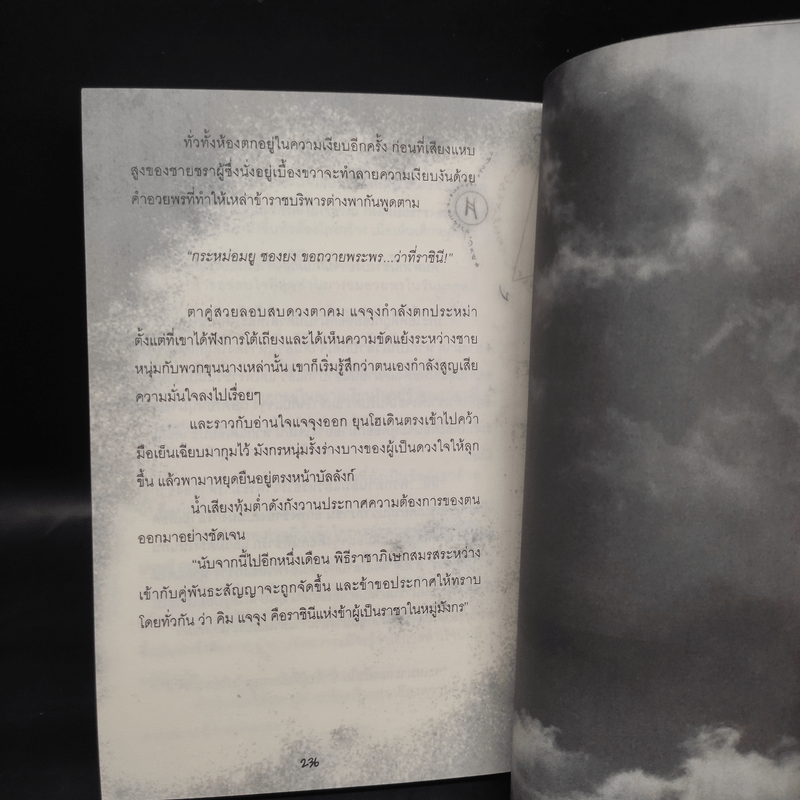 ทั่วทั้งห้องตกอยู่ในความเงียบอีกครั้ง ก่อนที่เสียงแหบ
สูงของชายชราผู้ซึ่งนั่งอยู่เบื้องขวาจะทำลายความเงียบงันด้วย
คำอวยพรที่ทำให้เหล่าข้าราชบริพารต่างพากันพูดตาม
"กระหม่อมยู ซองยง ขอถวายพระพร...ว่าที่ราชินี!"
ตาคู่สวยลอบสบดวงตาคม แจจุงกำลังตกประหม่า
ตั้งแต่ที่เขาได้ฟังการโต้เถียงและได้เห็นความขัดแย้งระหว่างชาย
หนุ่มกับพวกขุนนางเหล่านั้น เขาก็เริ่มรู้สึกว่าตนเองกำลังสูญเสีย
ความมั่นใจลงไปเรื่อยๆ
และราวกับอ่านใจแจจุงออก ยุนโฮเดินตรงเข้าไปคว้า
มือเย็นเฉียบมากุมไว้ มังกรหนุ่มรั้งร่างบางของผู้เป็นดวงใจให้ลุก
ขึ้น แล้วพามาหยุดยืนอยู่ตรงหน้าบัลลังก์
น้ำเสียงทุ้มต่ำดังกังวานประกาศความต้องการของตน
ออกมาอย่างชัดเจน
"นับจากนี้ไปอีกหนึ่งเดือน พิธีราชาภิเษกสมรสระหว่าง
เข้ากับคู่พันธะสัญญาจะถูกจัดขึ้น และข้าขอประกาศให้ทราบ
โดยทั่วกัน ว่า คิม แจจุง คือราชินีแห่งข้าผู้เป็นราชาในหมู่มังกร"
236